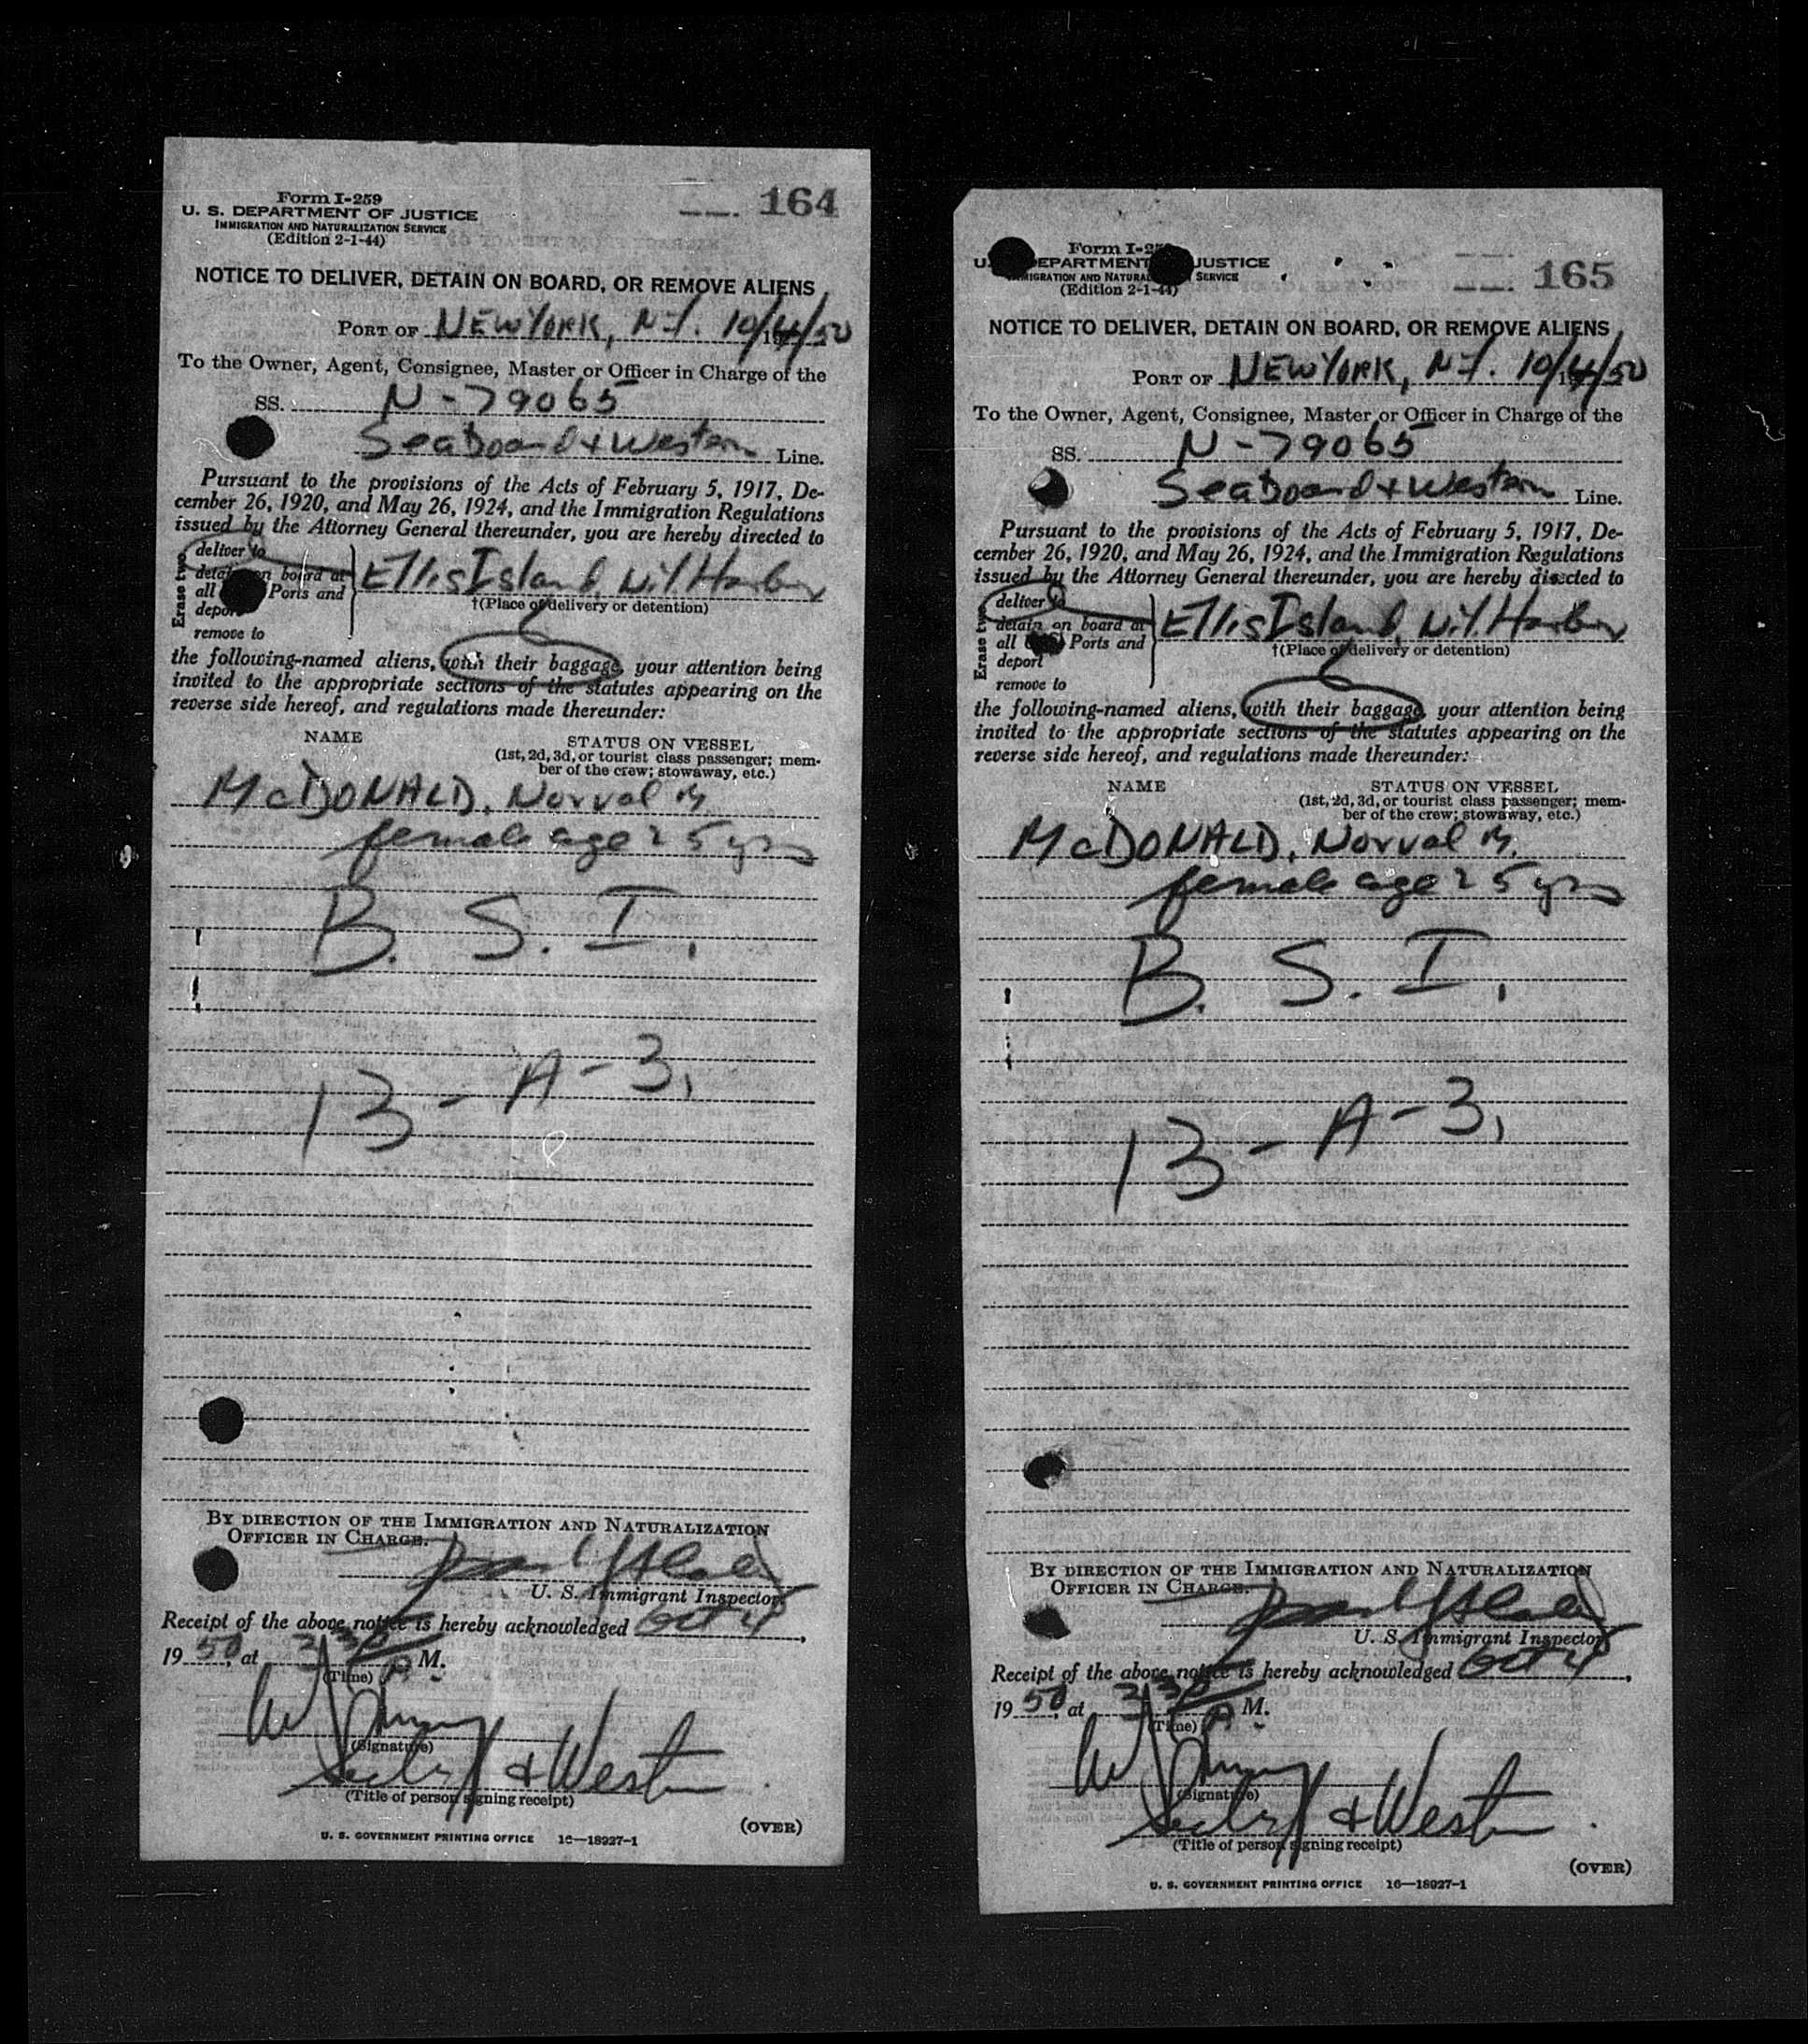 Form I-259
U. S. DEPARTMENT OF JUSTICE
IMMIGRATION AND NATURALIZATION SERVICE
(Edition 2-1-44)
164
NOTICE TO DELIVER, DETAIN ON BOARD, OR REMOVE ALIENS
PORT OF NEW YORK, N.Y. 10/4/50
To the Owner, Agent, Consignee, Master or Officer in Charge of the
SS. N-79065
Seaboard & Western Line.
Pursuant to the provisions of the Acts of February 5, 1917, De-
cember 26, 1920, and May 26, 1924, and the Immigration Regulations
issued by the Attorney General thereunder, you are hereby directed to
Erase two
deliver to
detain on board at
all Ports and
deport
remove to
Ellis Island, N.Y. Harbor
†(Place of delivery or detention)
the following-named aliens, with their baggage, your attention being
invited to the appropriate sections of the statutes appearing on the
reverse side hereof, and regulations made thereunder:
NAME
STATUS ON VESSEL
(1st, 2d, 3d, or tourist class passenger; mem-
ber of the crew; stowaway, etc.)
McDONALD, Norval M
female age 25 yrs
B. S. I.
13-A-3,
BY DIRECTION OF THE IMMIGRATION AND NATURALIZATION
OFFICER IN CHARGE.
U. S. Immigrant Inspector.
Receipt of the above notice is hereby acknowledged Oct 4,
1950, at 330 A M.
(Time)
(Signature)
& Western
(Title of person signing receipt)
(OVER)
U. S. GOVERNMENT PRINTING OFFICE 16—18927-1
Form I-259
U. DEPARTMENT JUSTICE
IMMIGRATION AND NATURAL SERVICE
(Edition 2-1-44)
165
NOTICE TO DELIVER, DETAIN ON BOARD, OR REMOVE ALIENS
PORT OF NEW YORK, N.Y. 10/4/50
To the Owner, Agent, Consignee, Master or Officer in Charge of the
SS. N-79065
Seaboard & Western Line.
Pursuant to the provisions of the Acts of February 5, 1917, De-
cember 26, 1920, and May 26, 1924, and the Immigration Regulations
issued by the Attorney General thereunder, you are hereby directed to
Erase two
deliver to
detain on board at
all Ports and
deport
remove to
Ellis Island, N.Y. Harbor
†(Place of delivery or detention)
the following-named aliens, with their baggage, your attention being
invited to the appropriate sections of the statutes appearing on the
reverse side hereof, and regulations made thereunder:
NAME
STATUS ON VESSEL
(1st, 2d, 3d, or tourist class passenger; mem-
ber of the crew; stowaway, etc.)
McDONALD, Norval M.
female age 25 yrs
B. S. I.
13-A-3,
BY DIRECTION OF THE IMMIGRATION AND NATURALIZATION
OFFICER IN CHARGE.
U. S. Immigrant Inspector.
Receipt of the above notice is hereby acknowledged Oct 4,
1950, at 330 A M.
(Time)
(Signature)
& Western
(Title of person signing receipt)
(OVER)
U. S. GOVERNMENT PRINTING OFFICE 16—18927-1